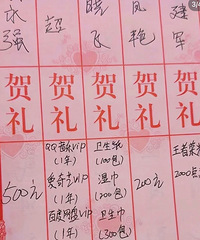 3/4
强 超 飞 艳 建军
贺礼 贺礼 贺礼 贺礼 贺礼
500元
QQ音乐VIP
(1年)
爱奇艺VIP
(1年)
百度网盘VIP
(1年)
卫生纸
(100包)
湿巾
(200包)
卫生巾
(300包)
200元
王者荣
2000点